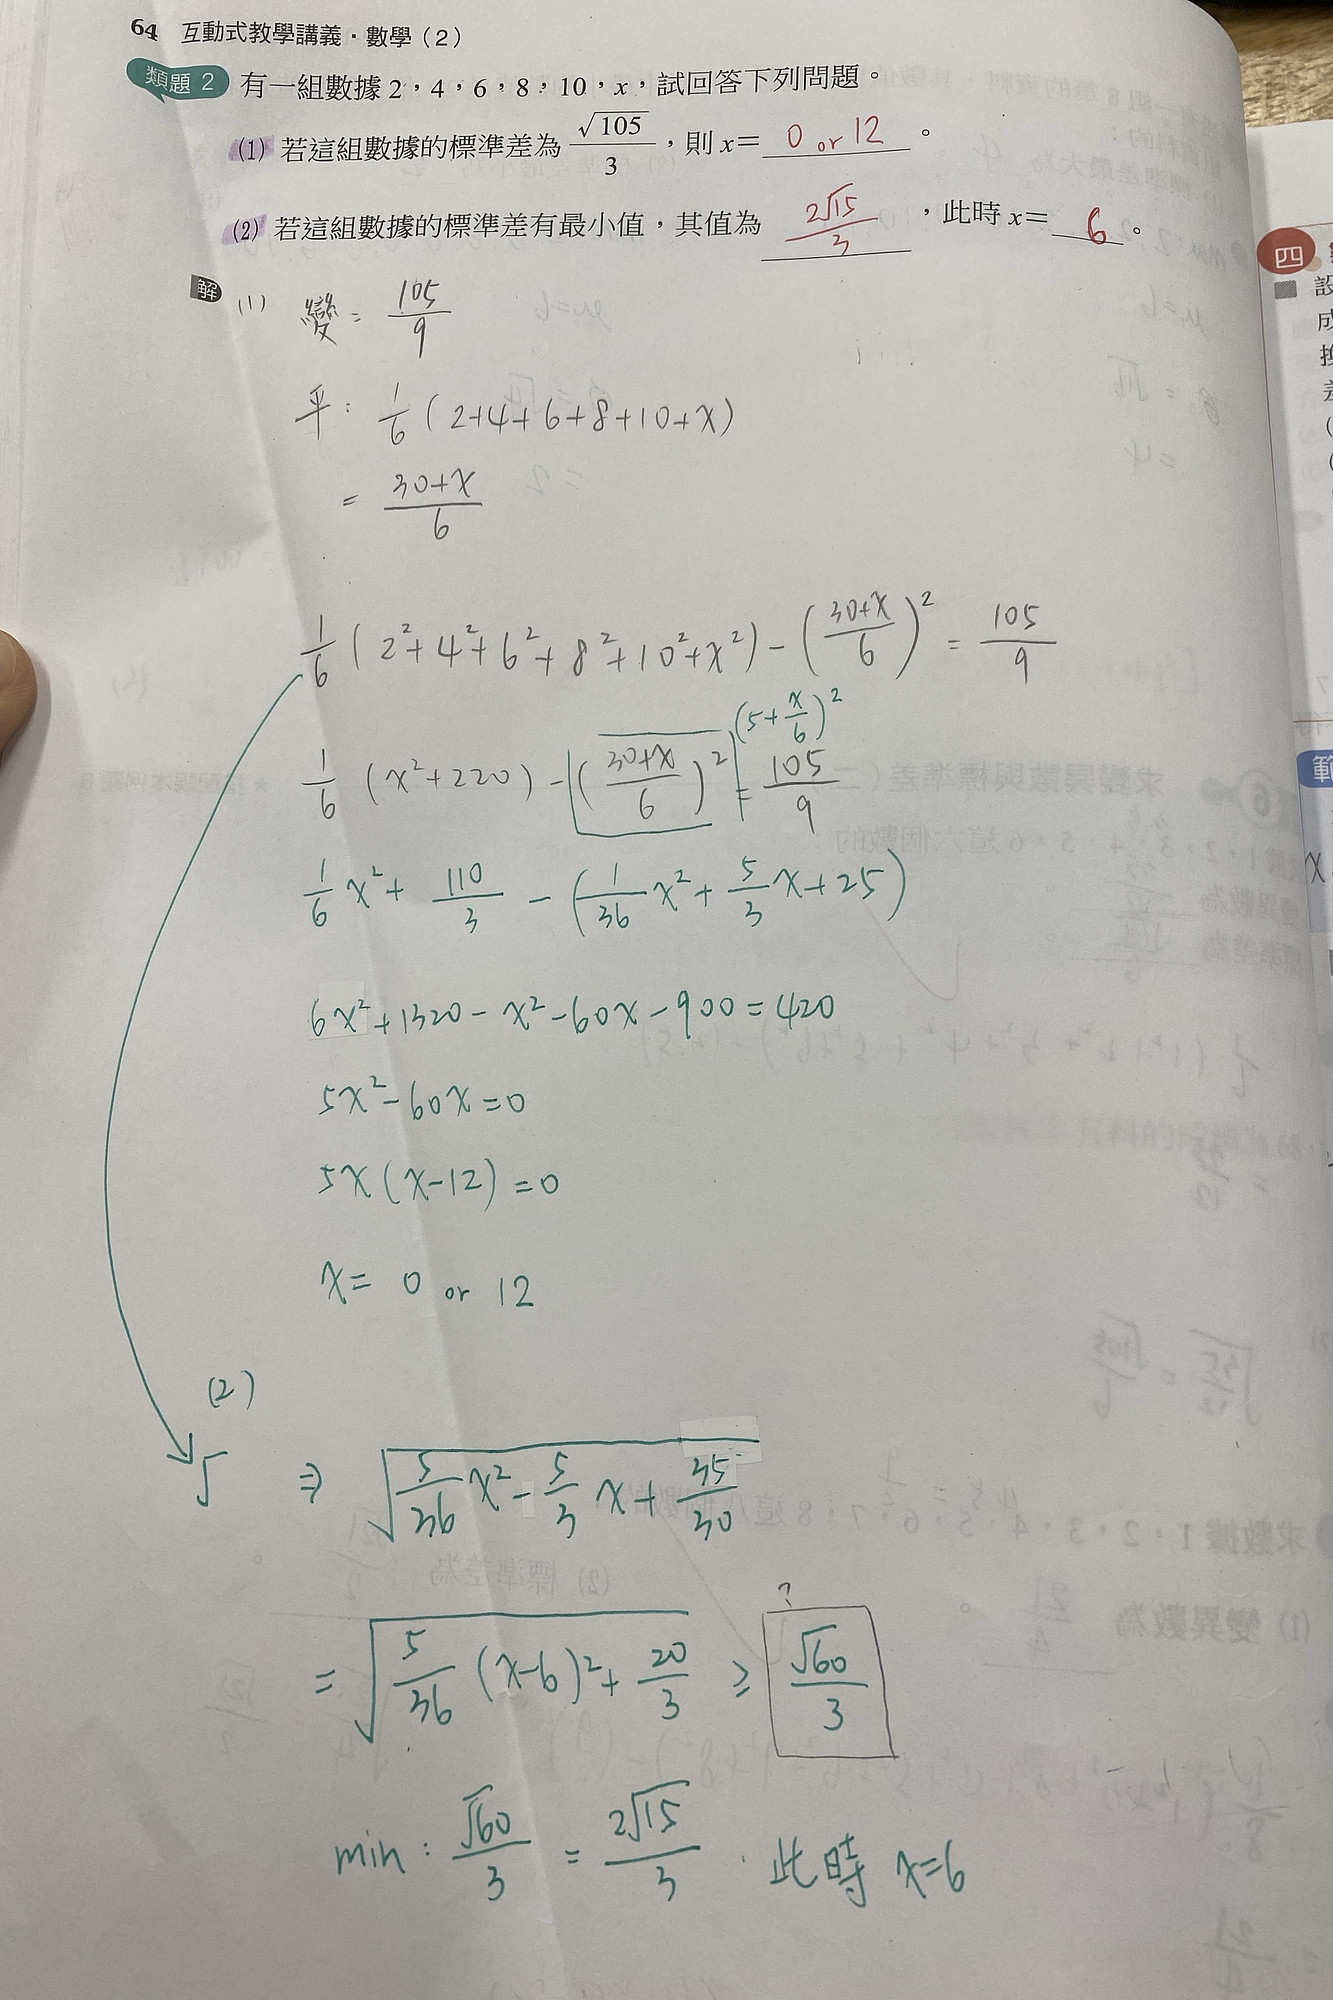 64 互動式教學講義・數學(2)
類題2 有一組數據2,4,6,8,10,x,試回答下列問題。
(1) 若這組數據的標準差為 √105/3,則x= 0 or 12 。
(2) 若這組數據的標準差有最小值,其值為 2√15/3 ,此時x= 6 。
解 (1) 變= 105/9
平: 1/6 (2+4+6+8+10+x)
= (30+x)/6
1/6 (2²+4²+6²+8²+10²+x²) - ((30+x)/6)² = 105/9
(5+x/6)²
1/6 (x²+220) - ((30+x)/6)² = 105/9
1/6 x² + 110/3 - (1/36 x² + 5/3 x + 25)
6x²+1320-x²-60x-900=420
5x²-60x=0
5x(x-12)=0
x= 0 or 12
(2)
√ ⇒ √(5/36 x² - 5/3 x + 35/30)
?
= √(5/36 (x-6)² + 20/3) ≥ √60/3
min: √60/3 = 2√15/3 . 此時 x=6
四
設
成
範
x